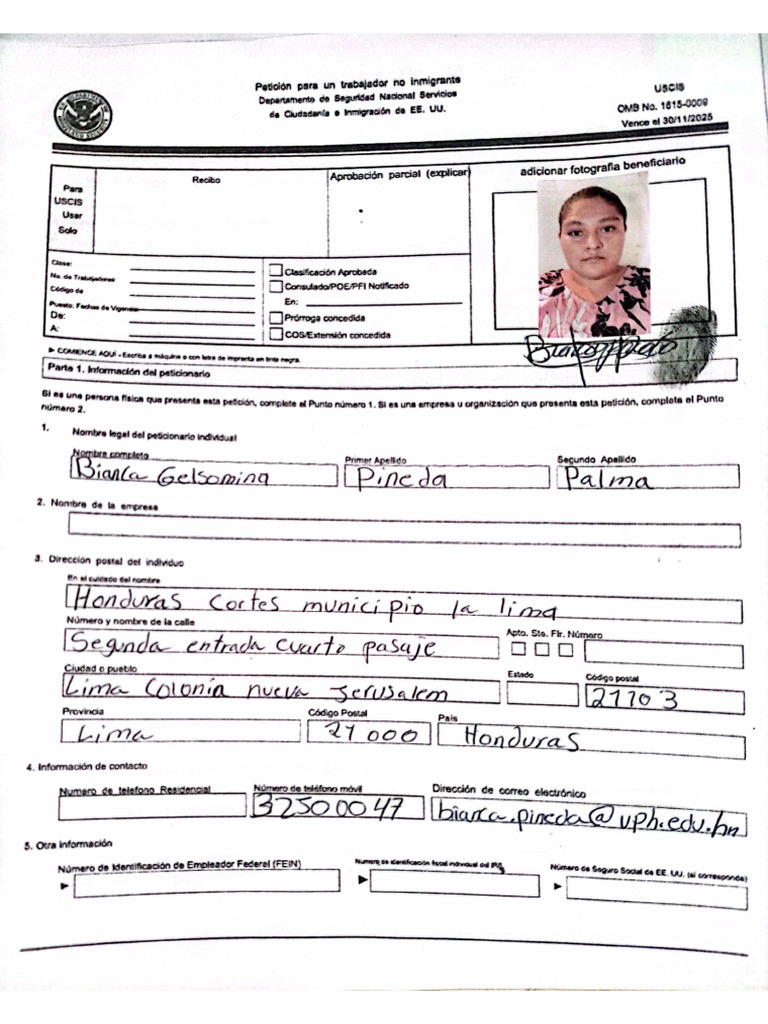 Petición para un trabajador no inmigrante
Departamento de Seguridad Nacional Servicios
de Ciudadanía e Inmigración de EE. UU.
USCIS
OMB No. 1615-0009
Vence el 30/11/2025
Para
USCIS
Usar
Solo
Recibo
Aprobación parcial (explicar)
adicionar fotografia beneficiario
Clase:
No. de Trabajadores:
Código de
Puesto: Fechas de Vigencia
De:
A:
Clasificación Aprobada
Consulado/POE/PFI Notificado
En:
Prórroga concedida
COS/Extensión concedida
► COMIENCE AQUÍ - Escriba a máquina o con letra de imprenta en tinta negra.
Parte 1. Información del peticionario
Si es una persona física que presenta esta petición, complete el Punto número 1. Si es una empresa u organización que presenta esta petición, complete el Punto
número 2.
1. Nombre legal del peticionario individual
Nombre completo Primer Apellido Segundo Apellido
Bianca Gelsomina Pineda Palma
2. Nombre de la empresa
3. Dirección postal del individuo
En el cuidado del nombre
Honduras Cortes municipio la lima
Número y nombre de la calle Apto. Ste. Flr. Número
Segunda entrada cuarto pasaje
Ciudad o pueblo Estado Código postal
Lima Colonia nueva Jerusalem 21103
Provincia Código Postal País
Lima 21000 Honduras
4. Información de contacto
Numero de telefono Residencial Número de teléfono móvil Dirección de correo electrónico
32500047 bianca.pineda@uph.edu.hn
5. Otra información
Número de Identificación de Empleador Federal (FEIN) Numero de identificación fiscal individual del IRS Número de Seguro Social de EE. UU. (si corresponde)